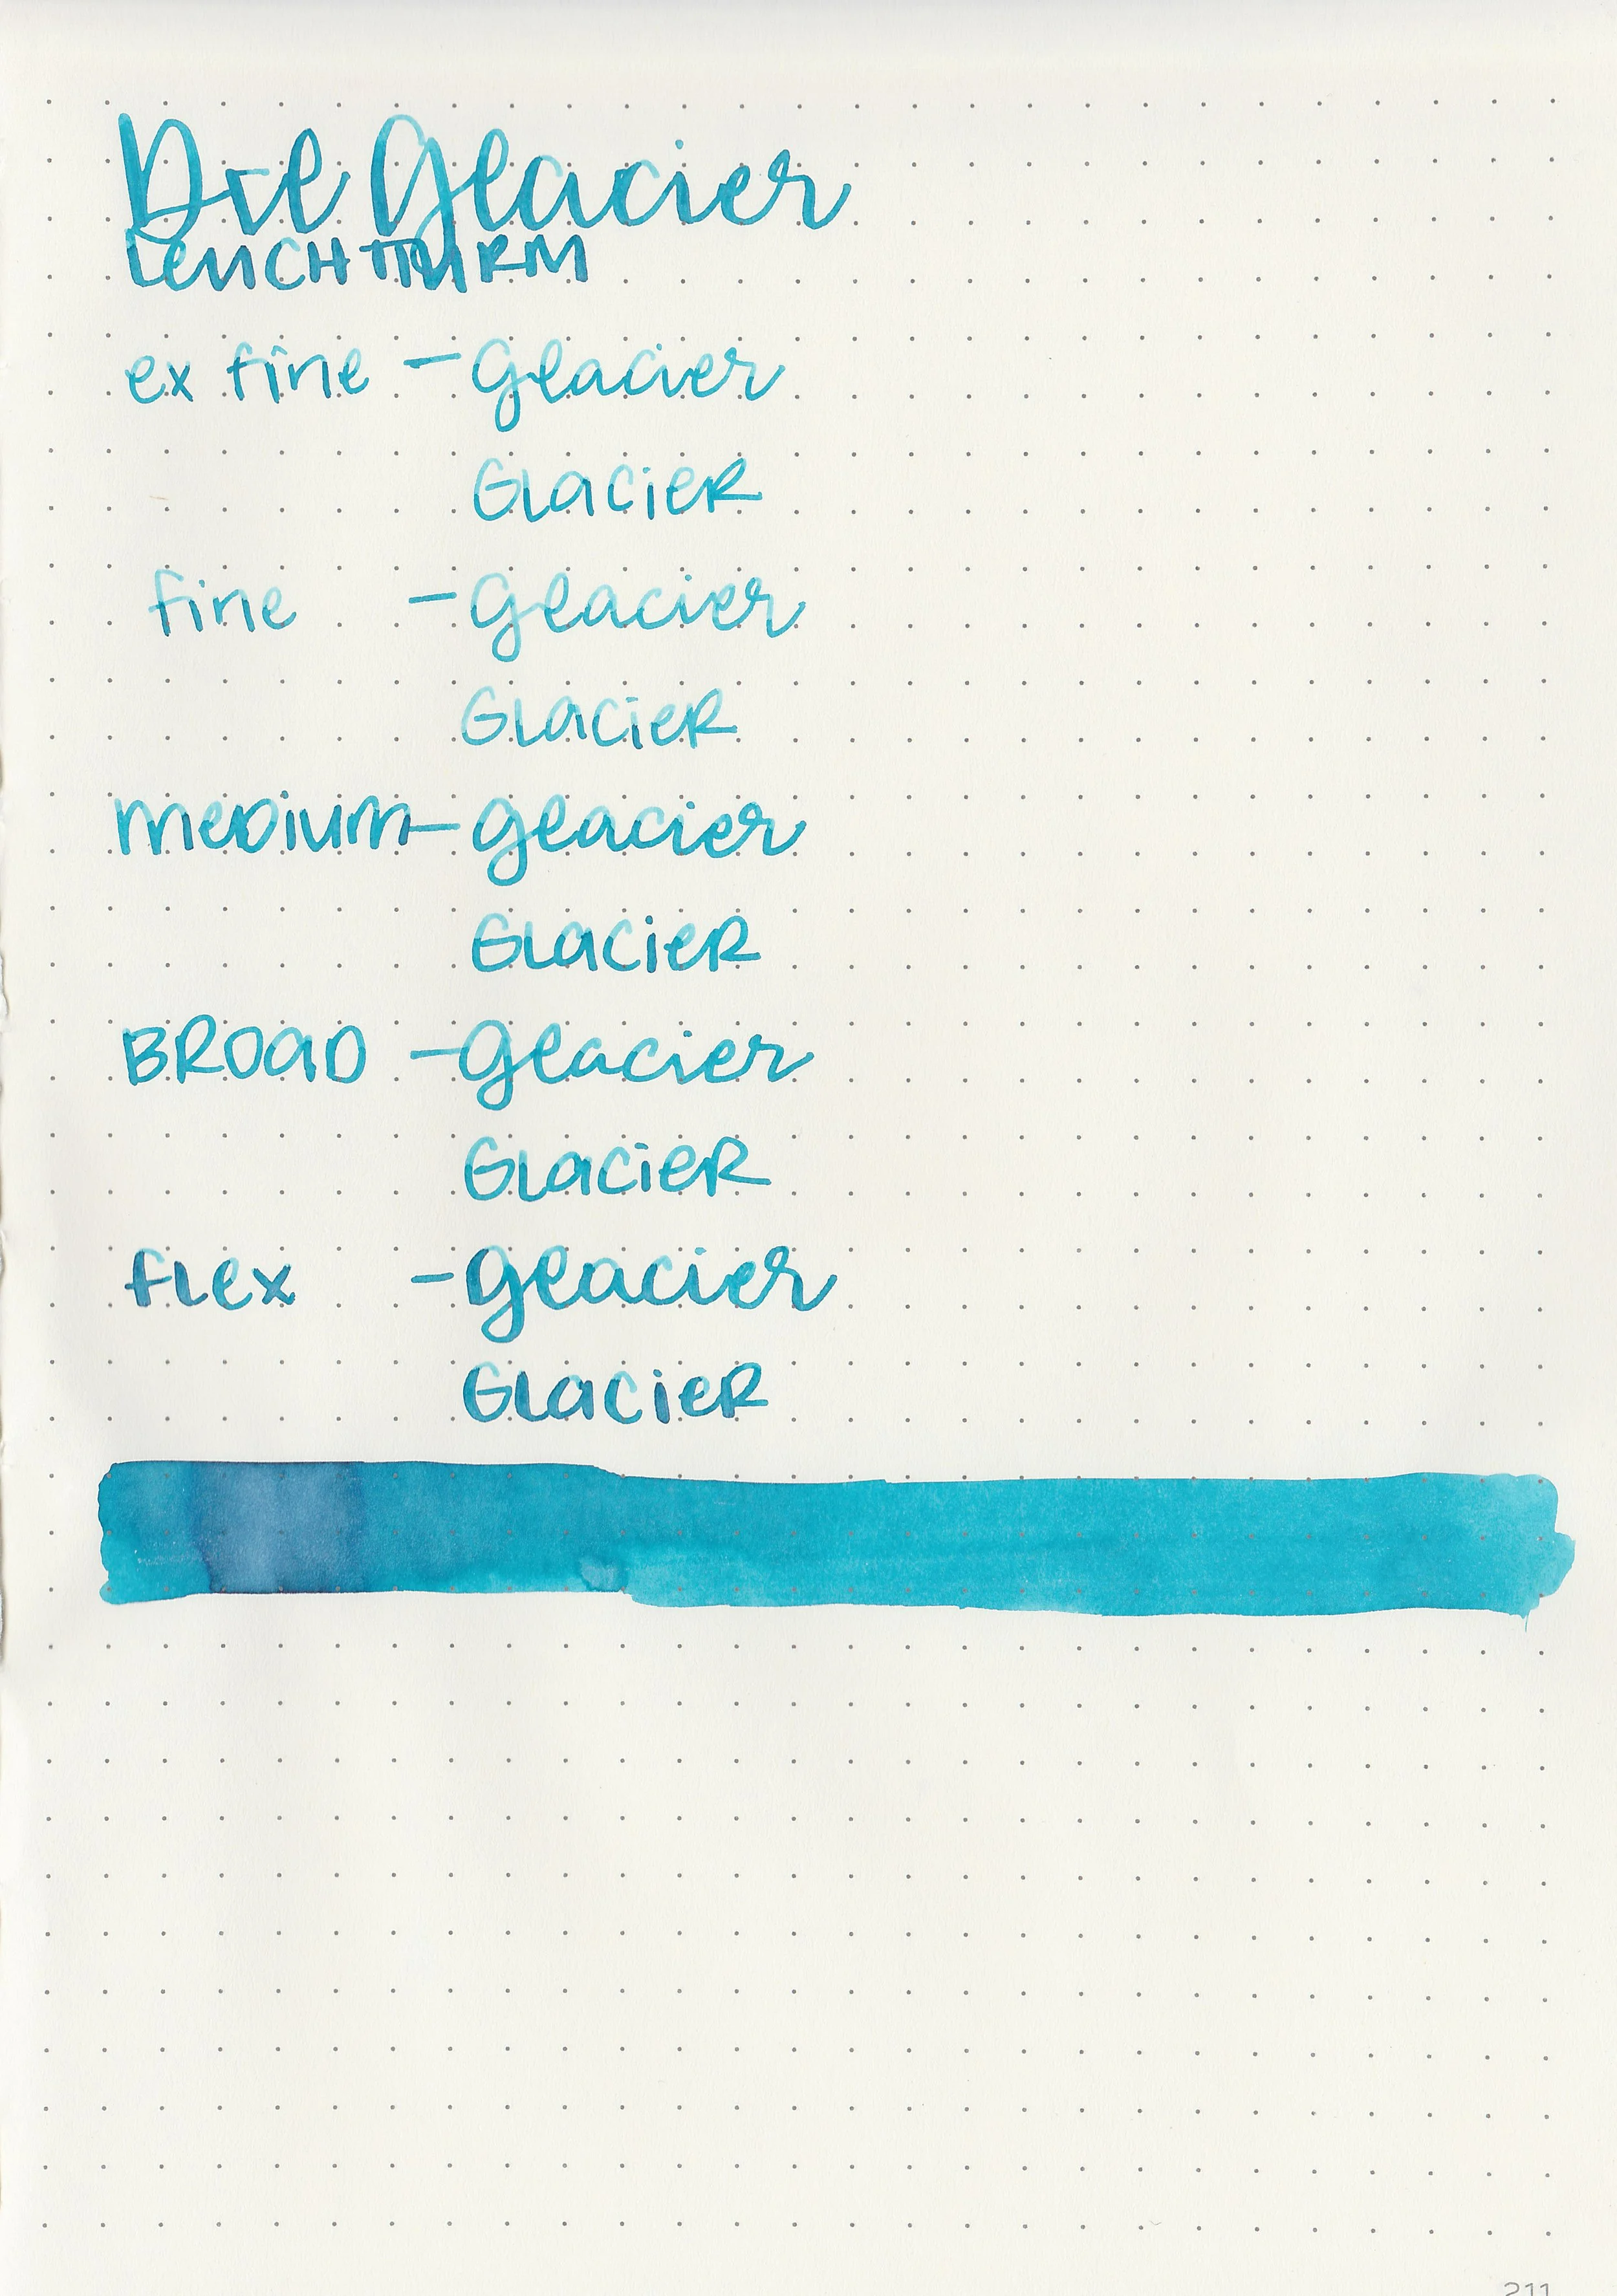 Glacier
LEUCHTTURM
ex fine – Glacier
GLacieR
fine – Glacier
GLacieR
MEDIUM – Glacier
GLacieR
BROAD – Glacier
GLacieR
FLEX – Glacier
GLacieR
211